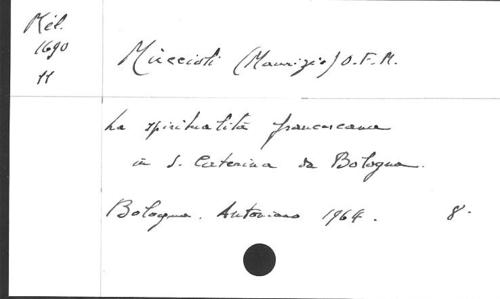 Mél.
1690
11
Muccioli (Maurizio) O.F.M.
La spiritualità francescana
in S. Caterina da Bologna.
Bologna. Antoniano 1964. 8.